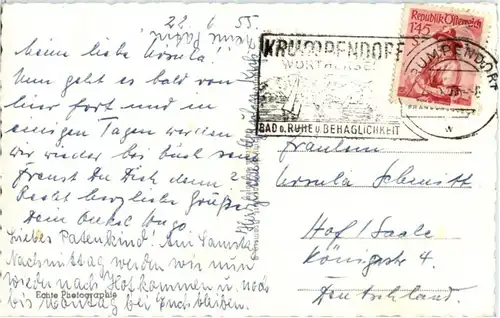 22. 6. 55.
Meine liebe Ursula!
Nun geht es bald von
hier fort und in
einigen Tagen werden
wir wieder bei Euch sein
Freust Du Dich denn?
Recht herzliche Grüße
Dein Onkel Hugo.
Liebes Patenkind. Am Samstag
Nachmittag werden wir nun
wieder nach Hof kommen u. noch
bis Montag bei Euch bleiben.
Echte Photographie
KRUMPENDORF
WÖRTHERSEE
BAD D. RUHE U. BEHAGLICHKEIT
Republik Österreich
1.45
KRUMPENDORF
Fräulein
Ursula Schmitt
Hof/Saale
Königstr. 4
Deutschland.